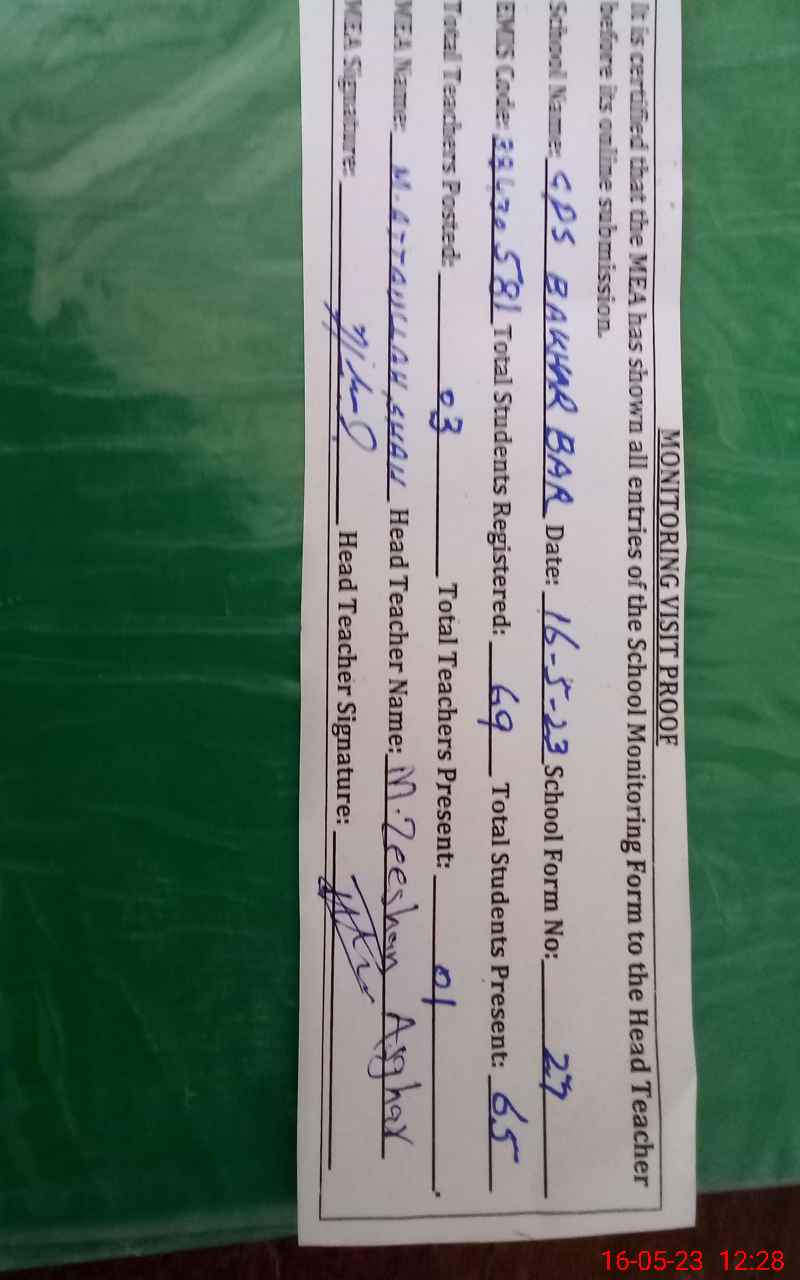 MONITORING VISIT PROOF
It is certified that the MEA has shown all entries of the School Monitoring Form to the Head Teacher
before its online submission.
School Name: GPS BAKHAR BAR Date: 16-5-23 School Form No: 27
EMIS Code: 581 Total Students Registered: 69 Total Students Present: 65
Total Teachers Posted: 03 Total Teachers Present: 01.
MEA Name: M. ATTAULLAH SHAH Head Teacher Name: M. Zeeshan Asghar
MEA Signature: Head Teacher Signature:
16-05-23 12:28